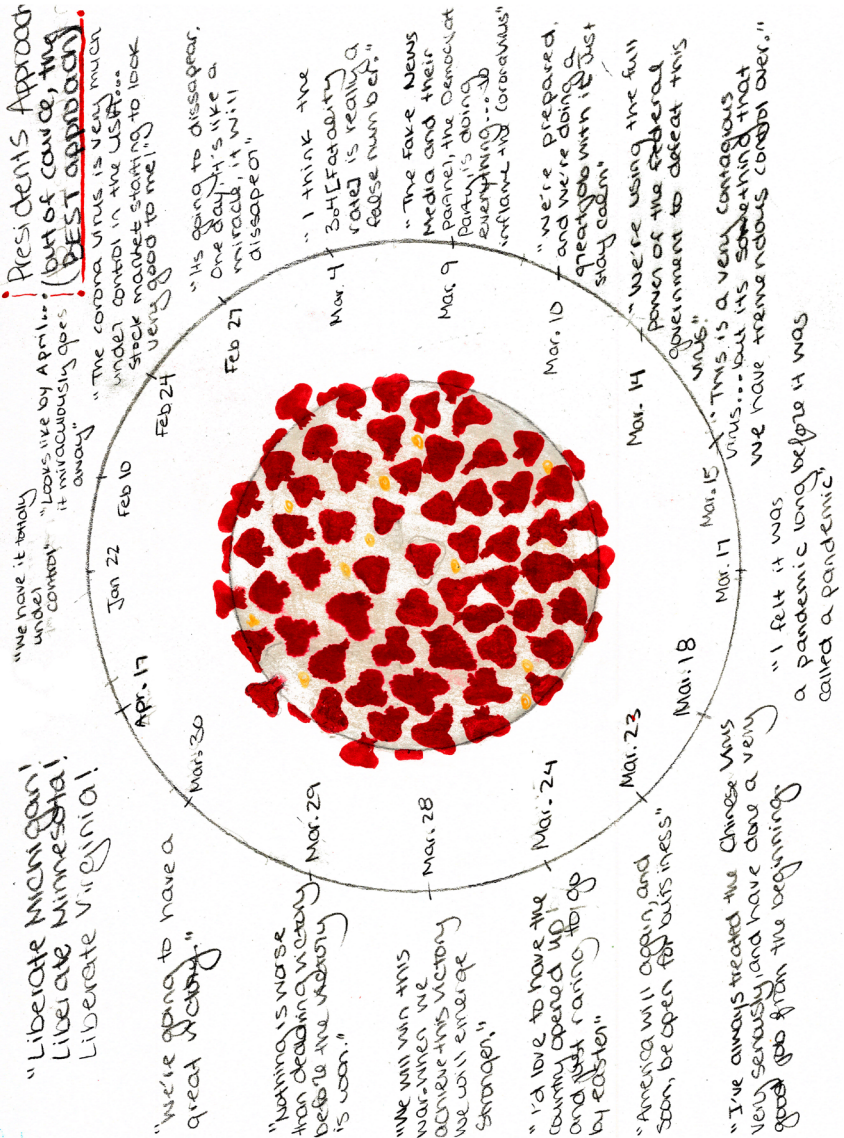 Presidents Approach
(but of cource, the
BEST approach)
"We have it totally
under
control"
Jan 22
"Looks like by April...
it miraculously goes
away"
Feb 10
"The corona virus is very much
under control in the USA...
stock market starting to look
very good to me!"
Feb 24
"Its going to dissapear,
One day, it's like a
miracle, it will
dissapear"
Feb 27
"I think the
3.4 [Fatality
rate] is really a
false number."
Mar. 4
"The Fake News
Media and their
partner, the Democrat
Party is doing
everything... to
inflame the coronavirus"
Mar. 9
"We're prepared,
and we're doing a
great job with it. Just
stay calm"
Mar. 10
"We're using the full
power of the federal
government to defeat this
virus"
Mar. 14
"This is a very contagious
virus... but its something that
we have tremendous control over."
Mar. 15
"I felt it was
a pandemic long before it was
called a pandemic"
Mar. 17
"I've always treated the Chinese Virus
very seriously, and have done a very
good job from the beginning.
Mar. 18
"America will again, and
soon, be open for business"
Mar. 23
"I'd love to have the
country opened up,
and just raring to go
by easter"
Mar. 24
"We will win this
war. When we
achieve this victory
we will emerge
stronger."
Mar. 28
"Nothing is worse
than declaring victory
before the victory
is won."
Mar. 29
"We're going to have a
great victory."
Mar. 30
"Liberate Michigan!
Liberate Minnesota!
Liberate Virginia!
Apr. 17